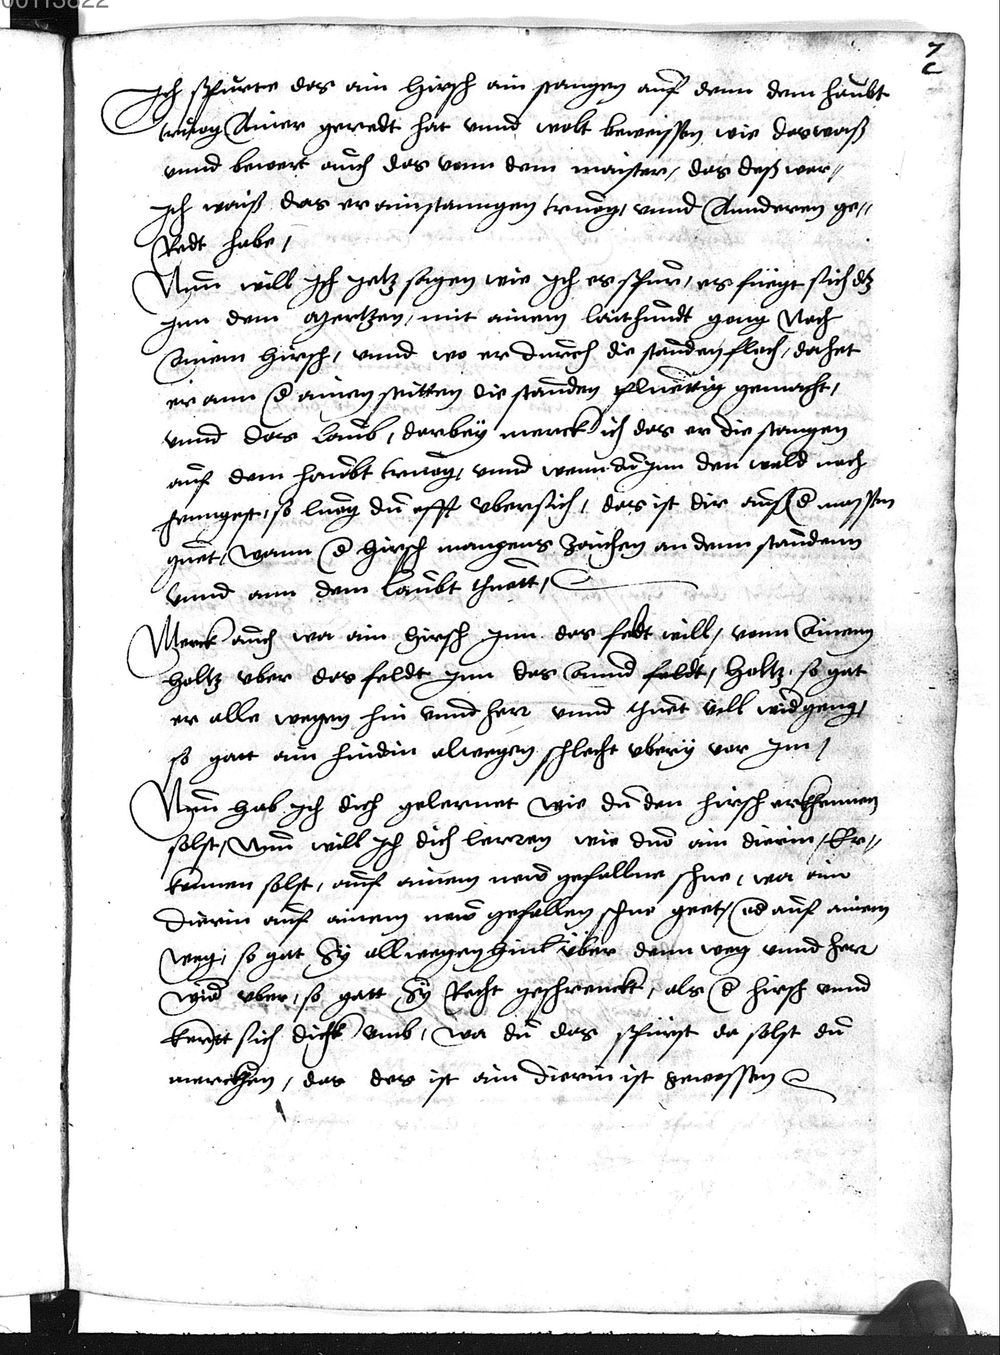 00113822
7
Ich spürte das ain Hirsch ain stangen auf denn dem haubt
truog Ainer geredt hat vnnd wolt beweissen wie das waß
vnnd bewert auch das vonn dem maister, das deß war,,
Ich waiß das er ain stanngen truog, vnnd Annderen ge,,
Redt habe,
Nun will Ich Jetz sagen wie Ich es spür, es füegt sich dz
Inn dem Mertzen, mit ainem laithundt gong Nach
Ainem Hirsch, vnnd wo er durch die standen floch, da het
er ann d ainen seitten die standen fluettig gemacht,
vnnd das laub, darbey merck ich das er die stangen
auf dem haubt truog, vnnd wenn du Inn den wald nach
henngest, so luog du offt vbersich, das ist dir auß d massen
guet, wann d Hirsch manngers zaichen an denn standenn
vnnd ann dem laubt thuott,
Merck auch wa ain Hirsch Inn das feldt will, vonn Ainem
holtz vber das feldt Inn das Annd feldt, holtz, so gat
er alle wegen hin vnnd herr vnnd thuet vill widgeng,
so gatt ain hindin alwegen schlecht vberig vor Im,
Nun hab Ich dich gelernet wie du den hirsch erkhennen
solst, Nun will Ich dich lerren wie duo ain dierin, Er,,
kennen solst, auf ainem new gefallne schne, wa ain
dierin auf ainem new gefallen schne geet, od auf ainem
weg, so gat Sy allwegen hin über denn weg vnnd herr
wid vber, so gatt Sy Recht geschrenckt, als d hirsch vnnd
kertt sich dickh vmb, wa du das spürst da solst du
merckhen, das des ist ain dierin ist gewessen